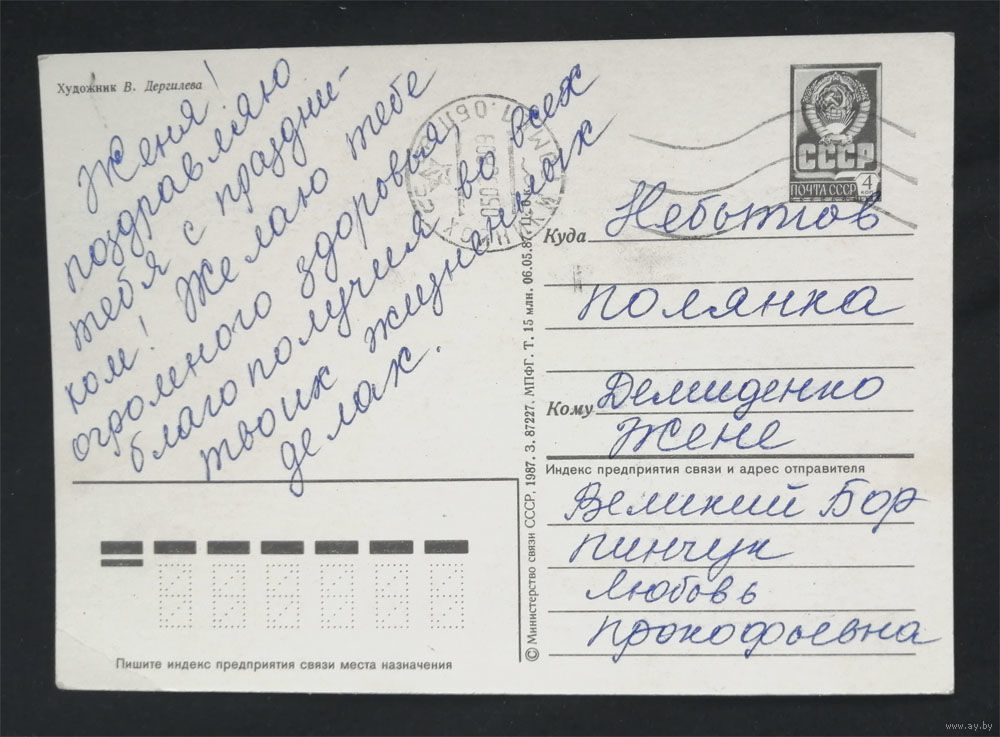 Художник В. Дергилева
Женя!
поздравляю
тебя с праздни-
ком! Желаю тебе
огромного здоровья,
благополучия во всех
твоих жизненных
делах.
СССР
ПОЧТА СССР
4
Куда Небытов
полянка
Кому Демиденко
Жене
Индекс предприятия связи и адрес отправителя
Великий Бор
пинчук
Любовь
прокофьевна
© Министерство связи СССР, 1987. З. 87227. МПФГ. Т. 15 млн. 06.05.87. Ц. 6 к.
Пишите индекс предприятия связи места назначения
www.ay.by